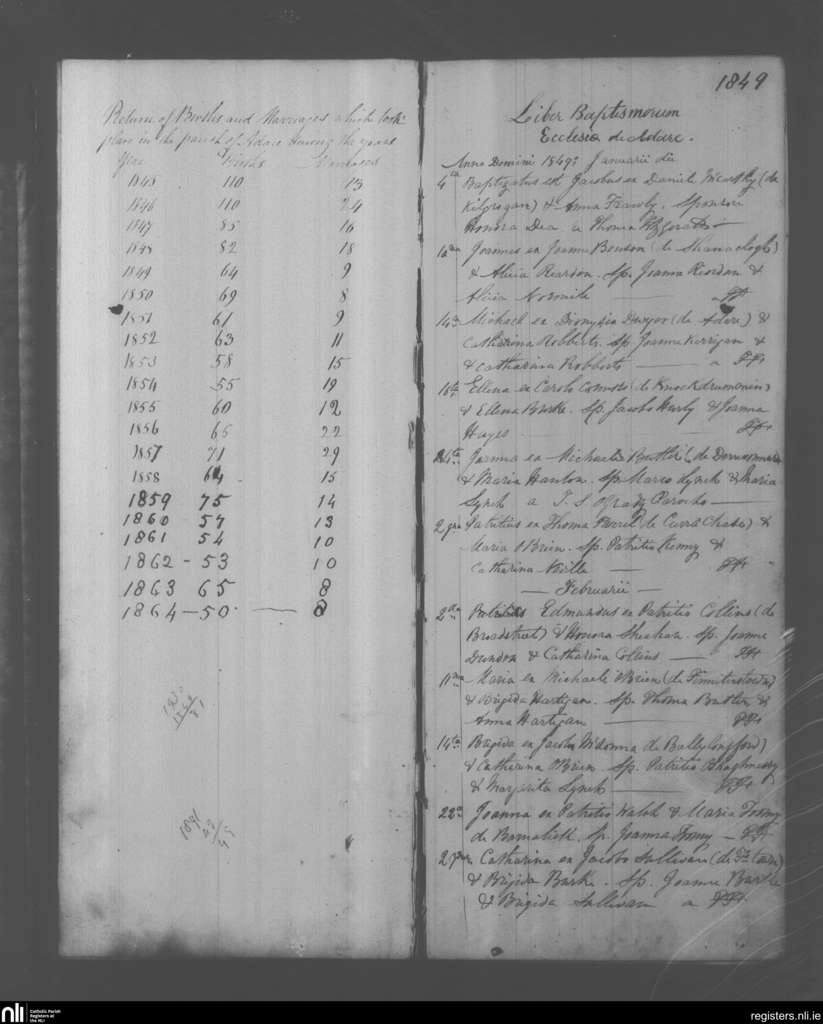 Return of Births and Marriages which took
place in the parish of Adare during the years
Year Births Marriages
1845 110 13
1846 110 24
1847 85 16
1848 82 18
1849 64 9
1850 69 8
1851 61 9
1852 63 11
1853 58 15
1854 55 19
1855 60 12
1856 65 22
1857 71 29
1858 64 15
1859 75 14
1860 57 13
1861 54 10
1862 - 53 10
1863 65 8
1864 - 50 8
1891
1849
Liber Baptismorum
Ecclesia de Adare.
Anno Domini 1849: Januarii die
4ta Baptizatus est Jacobus ex Daniele (de
Kilgrogan) & Anna Frawly. Sponsori
Honora Dea a Thoma Fitzgerald
Joannes ex Joanne Bowson (de Shanaclogh)
& Alicia Reardon. Sp. Joanna Riordan &
Alicia Normile
14ta Michael ex Dionysio Dwyer (de Adare) &
Catharina Robberts. Sp. Joanne Kerrigan &
& Catharina Robberts a
16ta Ellena ex Carolo (de Knockdrumonin)
& Ellena Burke. Sp. Jacobo Hurly & Joanna
Hayes
Joanna ex Michaele Butler (de
& Maria Hanlon. Sp. Marco Lynch & Maria
Lynch a Parocho
Patritius ex Thoma (de Curra Chase) &
Maria OBrien. Sp. Patritio &
Catharina Neville
Februarii
2da Patritius Edmundus ex Patritio Collins (de
Broadstreet) & Honora Sheehan. Sp. Joanne
Dundon & Catharina Collins
11ma Maria ex Michaele OBrien (de
& Brigida Hartigan. Sp. Thoma Butler &
Anna Hartigan
14ta Brigida ex Jacobo de Ballylongford)
& Catharina OBrien. Sp. Patritio
& Margarita Lynch
22a Joanna ex Patritio Walsh & Maria
de Barnakill. Sp. Joanna
Catharina ex Jacobo Sullivan (de
& Brigida Burke. Sp. Joanne Burke
& Brigida Sullivan a
registers.nli.ie
nli
Catholic Parish
Registers at
the NLI